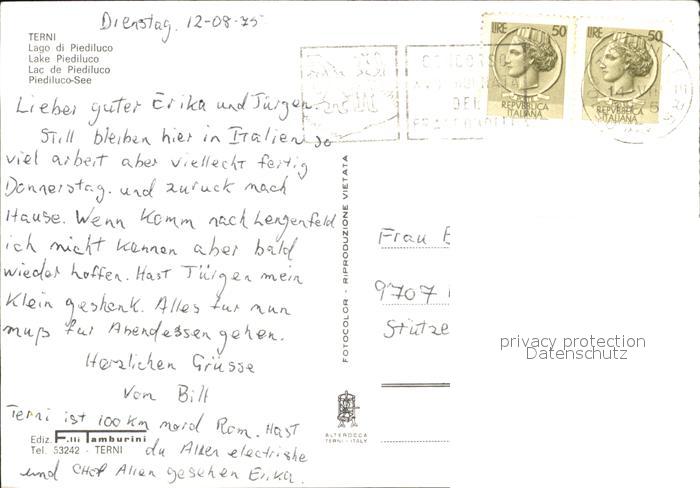 Dienstag. 12-08-75
TERNI
Lago di Piediluco
Lake Piediluco
Lac de Piediluco
Piediluco-See
LIRE 50
REPVBBLICA
ITALIANA
LIRE 50
REPVBBLICA
ITALIANA
Lieber guter Erika und Jürgen.
Still bleiben hier in Italien so
viel arbeit aber vielleckt fertig
Donnerstag. und zurück nach
Hause. Wenn komm nach Lengenfeld
ich nicht kennen aber bald
wieder hoffen. Hast Jürgen mein
Klein geshenk. Alles fur nun
muß fur Abendessen gehen.
Herzlichen Grüsse
Von Bill
Terni ist 100 km nord Rom. Hast
du Allen electrishe
und Chef Allen gesehen Erika.
Ediz. F.lli Tamburini
Tel. 53242 - TERNI
FOTOCOLOR - RIPRODUZIONE VIETATA
ALTEROCCA
TERNI-ITALY
Frau
9707
Stütze
privacy protection
Datenschutz